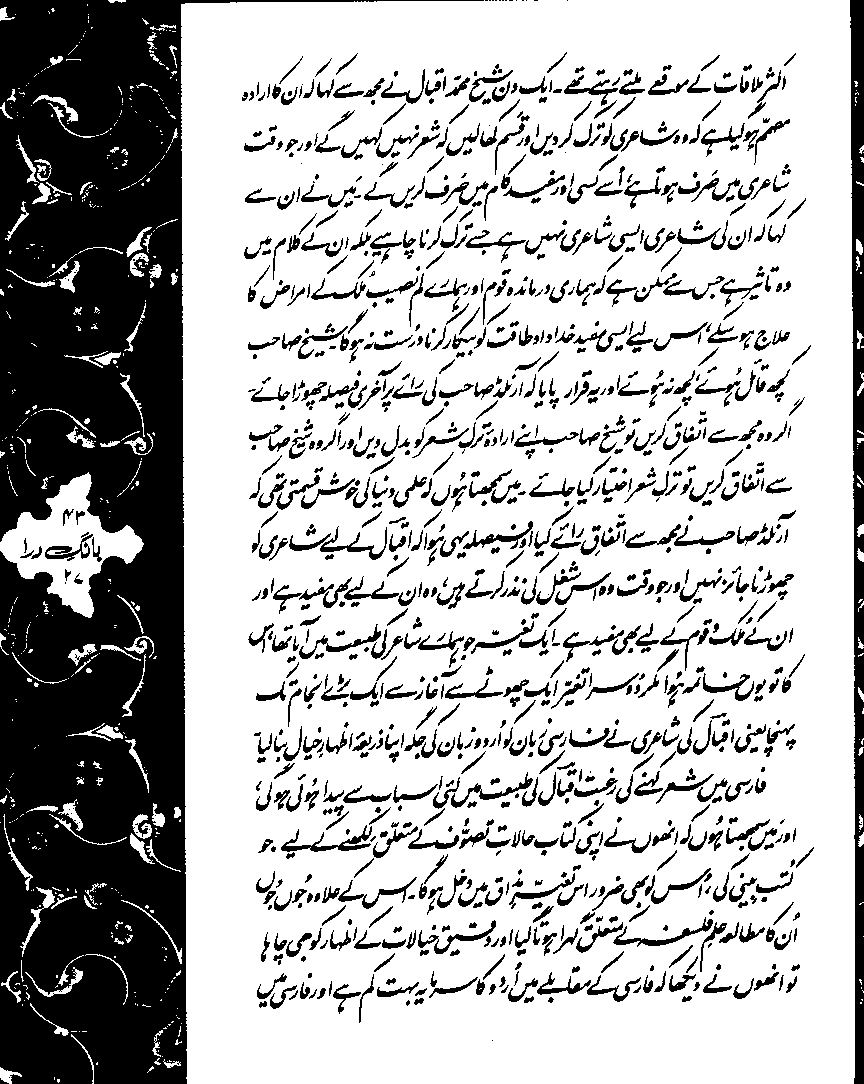 اکثر ملاقات کے موقعے ملتے رہتے تھے۔ ایک دن شیخ محمد اقبال نے مجھ سے کہا کہ ان کا ارادہ
مصمّم ہوگیا ہے کہ وہ شاعری کو ترک کر دیں اور قسم کھا لیں کہ شعر نہیں کہیں گے اور جو وقت
شاعری میں صَرف ہوتا ہے، اُسے کسی اور مفید کام میں صَرف کریں گے۔ مَیں نے ان سے
کہا کہ ان کی شاعری ایسی شاعری نہیں ہے جسے ترک کرنا چاہیے بلکہ ان کے کلام میں
وہ تاثیر ہے جس سے ممکن ہے کہ ہماری درماندہ قوم اور ہمارے کم نصیب مُلک کے امراض کا
علاج ہو سکے، اس لیے ایسی مفید خداداد طاقت کو بیکار کرنا درست نہ ہوگا۔ شیخ صاحب
کچھ قائل ہُوئے، کچھ نہ ہُوئے اور یہ قرار پایا کہ آرنلڈ صاحب کی رائے پر آخری فیصلہ چھوڑا جائے۔
اگر وہ مجھ سے اتّفاق کریں تو شیخ صاحب اپنے ارادۂ ترکِ شعر کو بدل دیں اور اگر وہ شیخ صاحب
سے اتّفاق کریں تو ترکِ شعر اختیار کیا جائے۔ مَیں سمجھتا ہُوں کہ علمی دنیا کی خوش قسمتی تھی کہ
آرنلڈ صاحب نے مجھ سے اتّفاقِ رائے کیا اور فیصلہ یہی ہُوا کہ اقبالؔ کے لیے شاعری کو
چھوڑنا جائز نہیں اور جو وقت وہ اس شغل کی نذر کرتے ہیں، وہ ان کے لیے بھی مفید ہے اور
ان کے مُلک و قوم کے لیے بھی مفید ہے۔ ایک تغیّر جو ہمارے شاعر کی طبیعت میں آیا تھا، اس
کا تو یوں خاتمہ ہُوا مگر دُوسرا تغیّر ایک چھوٹے سے آغاز سے ایک بڑے انجام تک
پہنچا یعنی اقبالؔ کی شاعری نے فارسی زبان کو اُردو زبان کی جگہ اپنا ذریعۂ اظہارِ خیال بنا لیا۔
فارسی میں شعر کہنے کی رغبت اقبالؔ کی طبیعت میں کئی اسباب سے پیدا ہُوئی ہوگی،
اور مَیں سمجھتا ہُوں کہ انھوں نے اپنی کتاب حالاتِ تصوّف کے متعلّق لکھنے کے لیے جو
کُتب بینی کی، اُس کو بھی ضرور اس تغیّرِ مذاق میں دخل ہوگا۔ اس کے علاوہ جُوں جُوں
اُن کا مطالعہ علمِ فلسفہ کے متعلّق گہرا ہوتا گیا اور دقیق خیالات کے اظہار کو جی چاہا
تو انھوں نے دیکھا کہ فارسی کے مقابلے میں اُردو کا سرمایہ بہت کم ہے اور فارسی میں
۴۳
بانگِ درا
۲۷